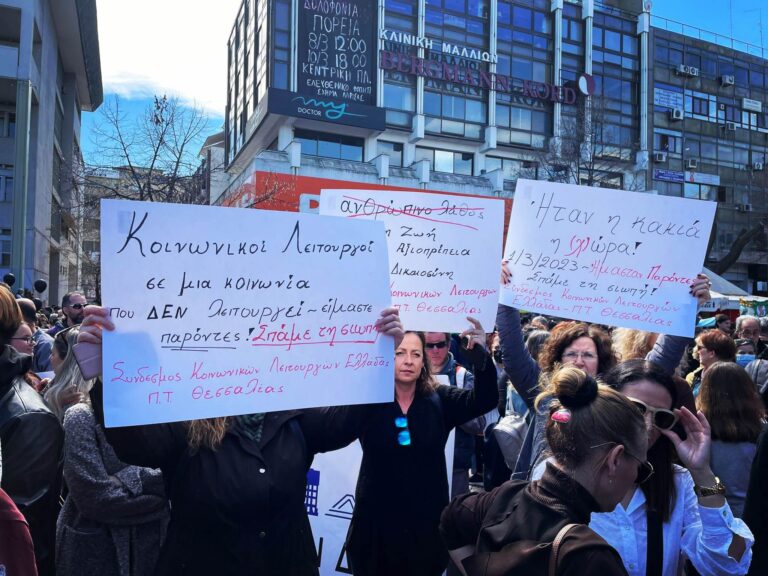 ΔΟΛΟΦΟΝΙΑ
ΠΟΡΕΙΑ
8/3 12:00
10/3 18:00
ΚΕΝΤΡΙΚΗ ΠΛ.
my
DOCTOR
ΚΛΙΝΙΚΗ ΜΑΛΛΙΩΝ
BERGMANN KORD
Κοινωνικοί Λειτουργοί
σε μια κοινωνία
που ΔΕΝ λειτουργεί ~ είμαστε
παρόντες! Σπάμε τη σιωπή
Σύνδεσμος Κοινωνικών Λειτουργών Ελλάδας
Π.Τ. Θεσσαλίας
ανθρώπινο λάθος
η Ζωή
Αξιοπρέπεια
Δικαιοσύνη
Κοινωνικών Λειτουργών
Π.Τ Θεσσαλίας
Ήταν η κακιά
η (χ)ώρα!
1/3/2023 ~ Ήμασταν Παρόντες
Σπάμε τη σιωπή!
Σύνδεσμος Κοινωνικών Λειτουργών
Ελλάδας - Π.Τ Θεσσαλίας